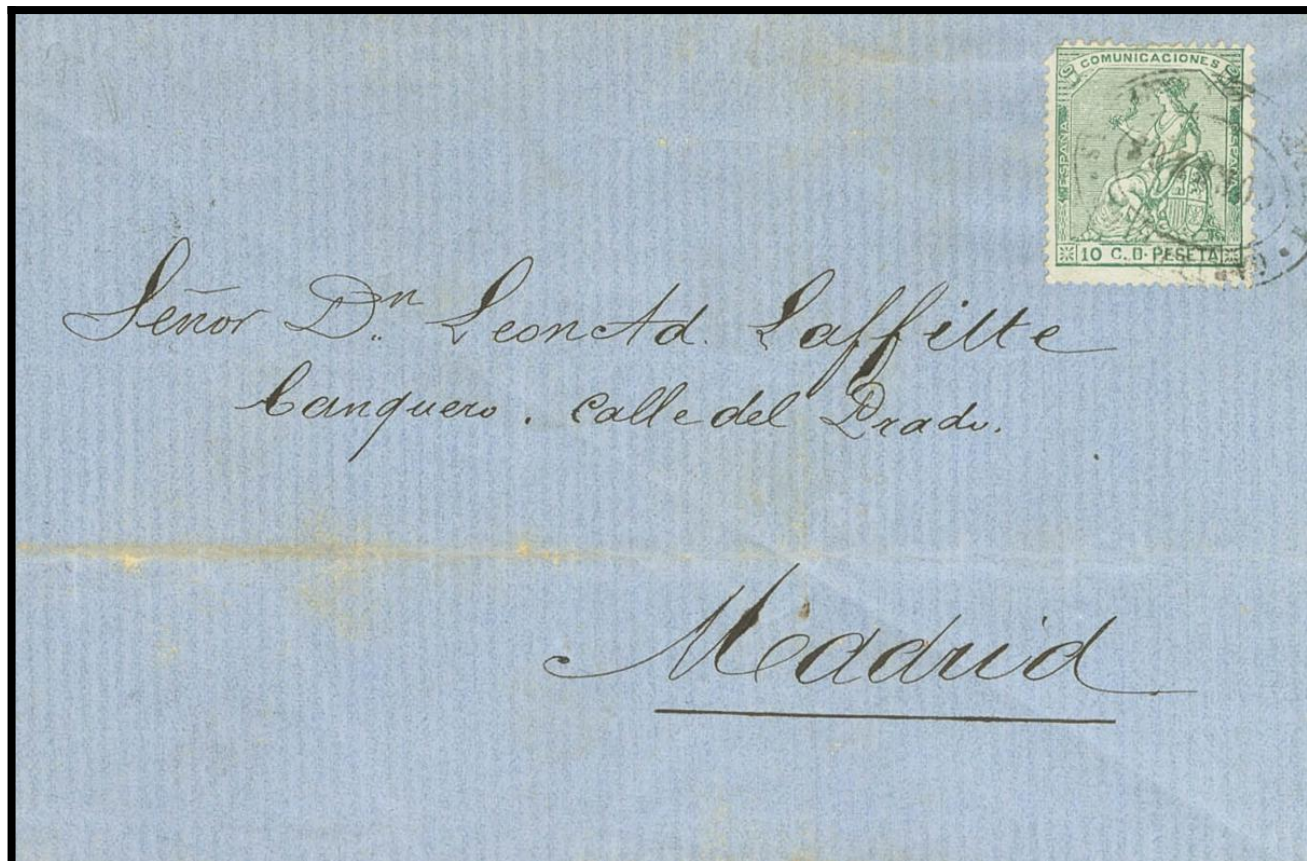 COMUNICACIONES
ESPAÑA
ESPAÑA
10 C. D. PESETA
Señor Dn Leon Ad. Laffitte
banquero. Calle del Prado.
Madrid